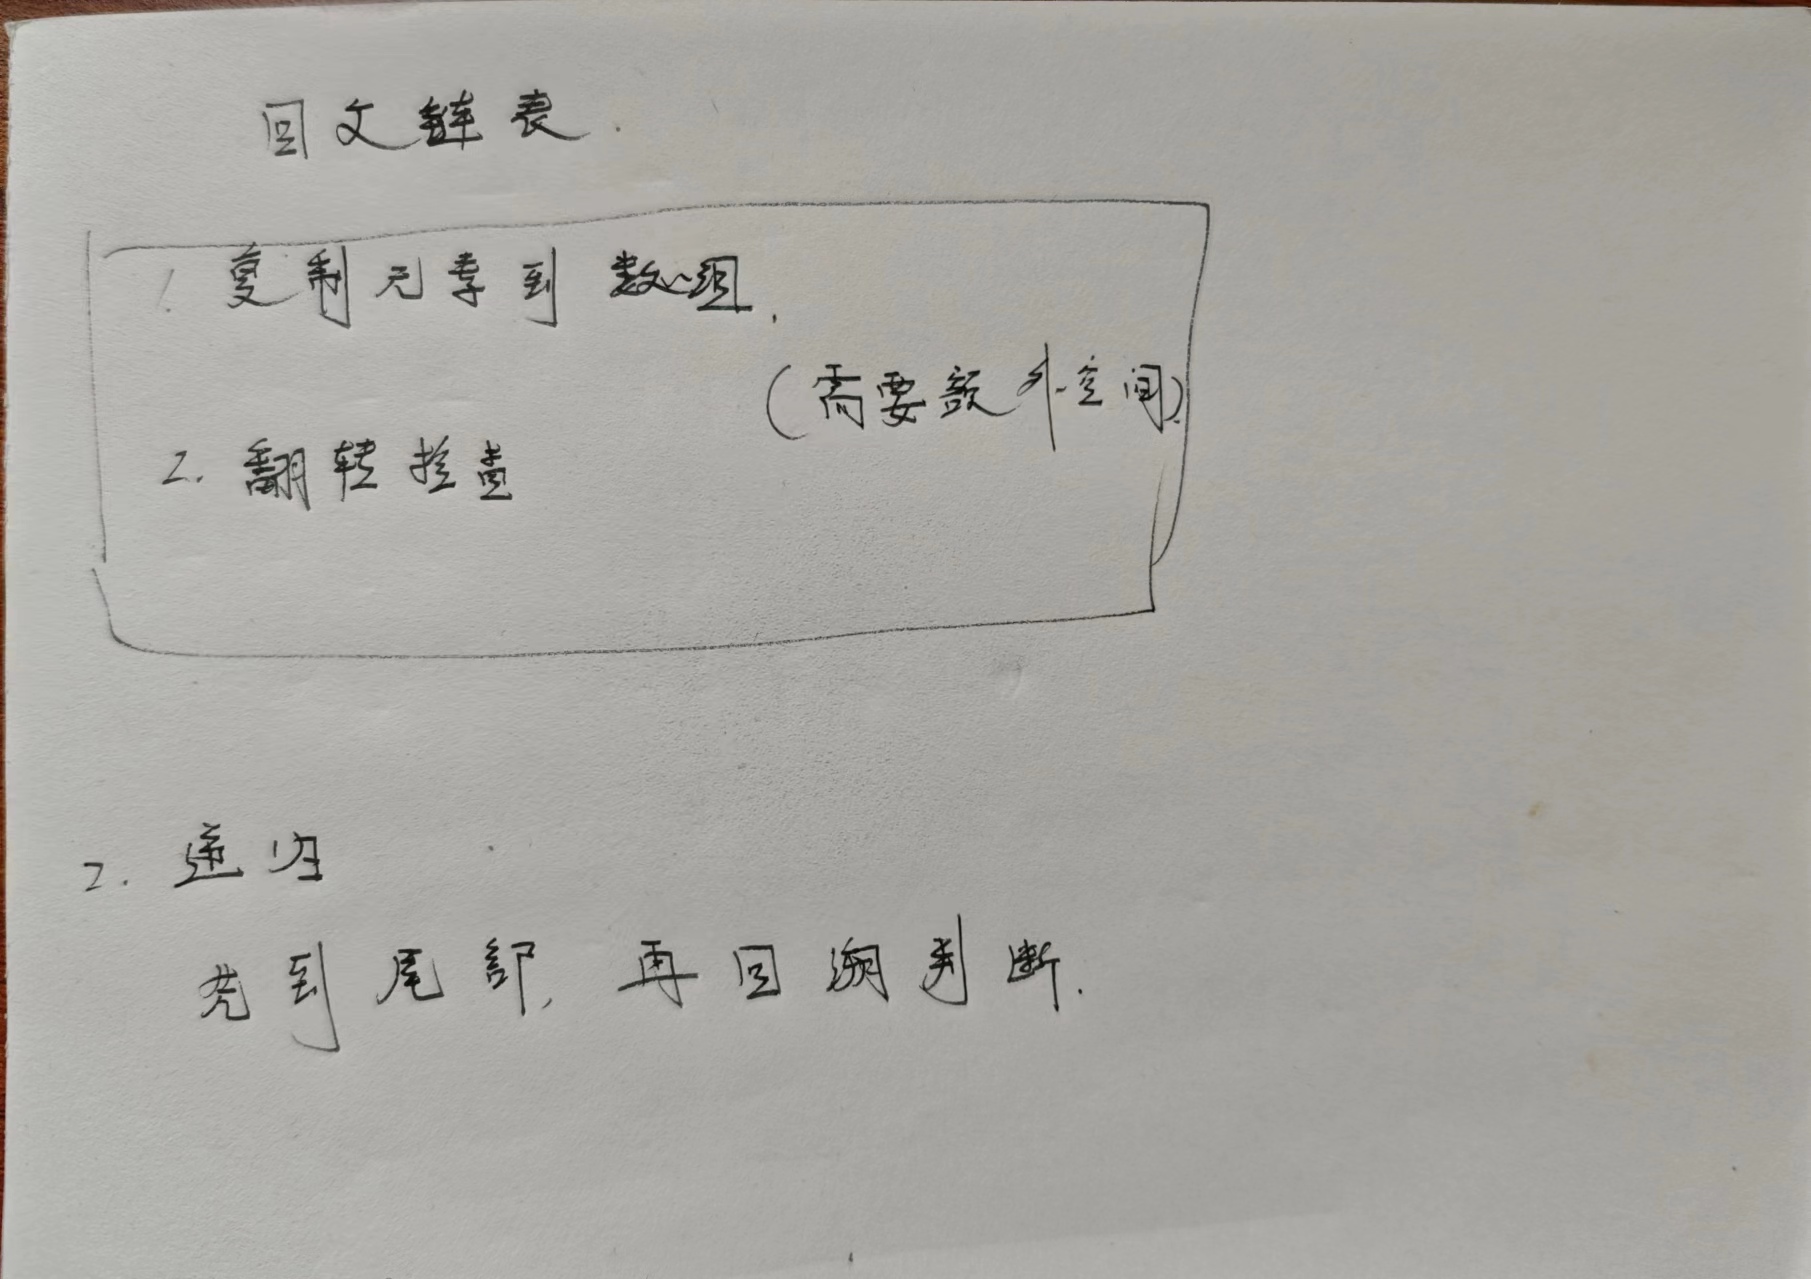 回文链表.
1. 复制元素到数组.
(需要额外空间)
2. 翻转检查
2. 递归
先到尾部, 再回溯判断.